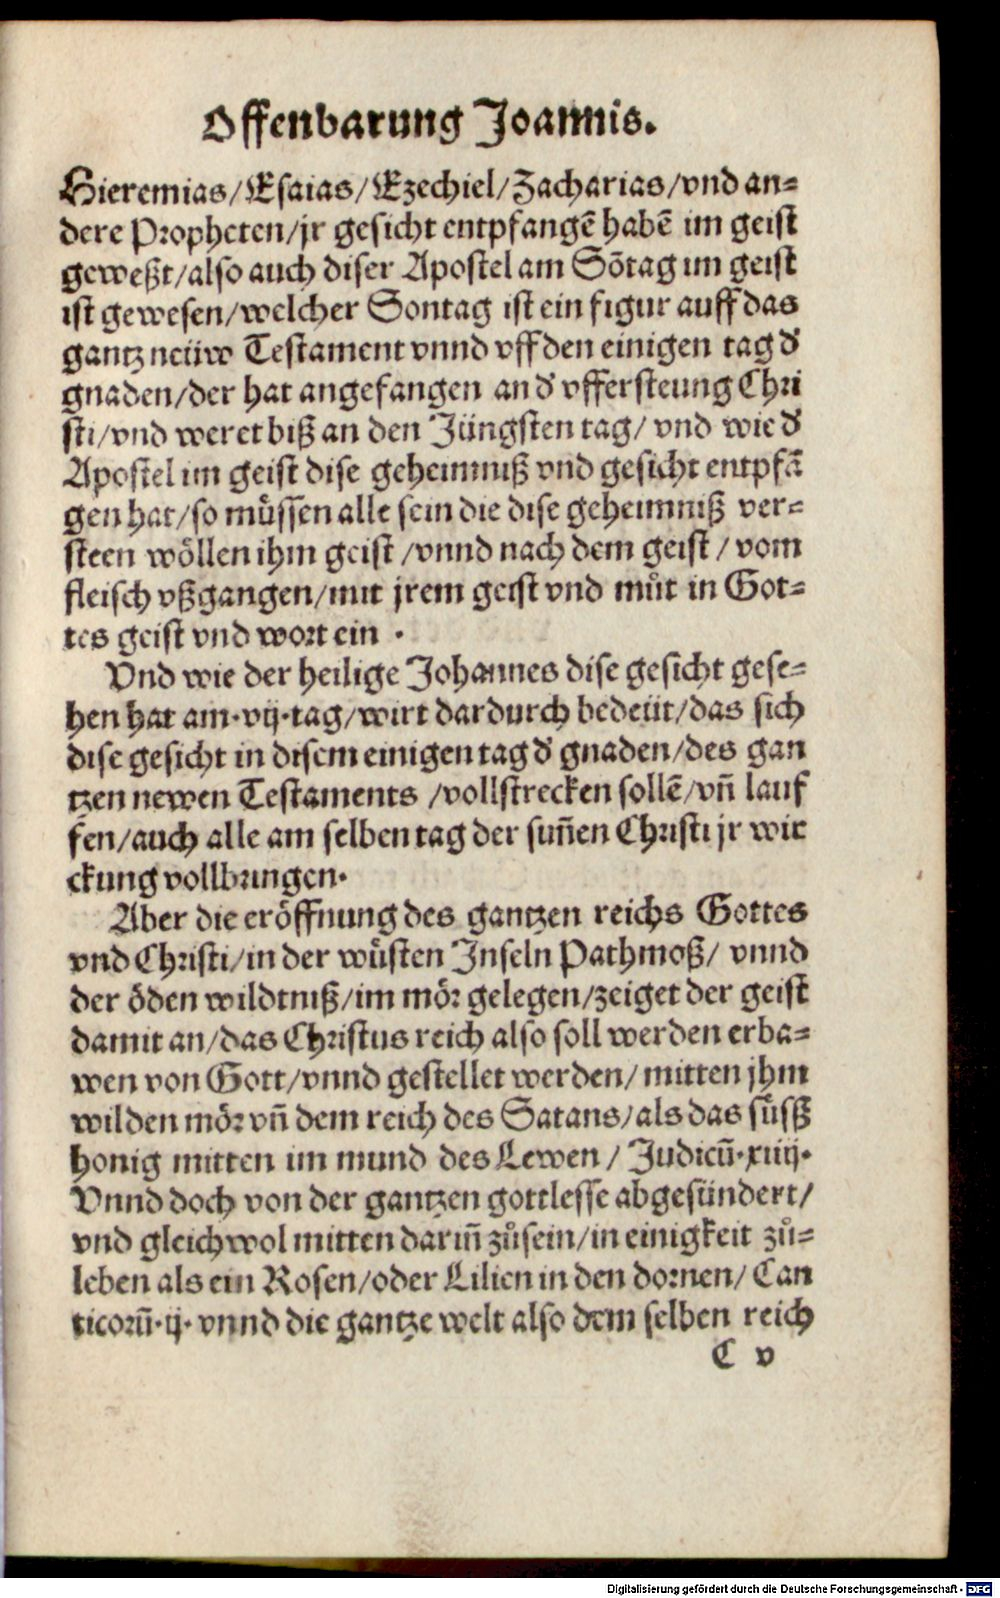 Offenbarung Joannis.
Hieremias/Esaias/Ezechiel/Zacharias/vnd an=
dere Propheten/jr gesicht entpfangē habē im geist
geweßt/also auch diser Apostel am Sōtag im geist
ist gewesen/welcher Sontag ist ein figur auff das
gantz neüw Testament vnnd vff den einigen tag d'
gnaden/der hat angefangen an d' vffersteung Chri
sti/vnd weret biß an den Jüngsten tag/ vnd wie d'
Apostel im geist dise geheimniß vnd gesicht entpfā
gen hat/so müssen alle sein die dise geheimniß ver=
steen wöllen ihm geist /vnnd nach dem geist / vom
fleisch vßgangen/mit jrem geist vnd můt in Got=
tes geist vnd wort ein .
Vnd wie der heilige Johannes dise gesicht gese=
hen hat am·vij·tag/wirt dardurch bedeüt/das sich
dise gesicht in disem einigen tag d' gnaden/des gan
tzen newen Testaments /vollstrecken sollē/vñ lauf
fen/auch alle am selben tag der suñen Christi jr wir
ckung vollbringen.
Aber die eröffnung des gantzen reichs Gottes
vnd Christi/in der wüsten Inseln Pathmoß/ vnnd
der öden wildtniß/im mör gelegen/zeiget der geist
damit an/das Christus reich also soll werden erba=
wen von Gott/vnnd gestellet werden/ mitten jhm
wilden mör vñ dem reich des Satans/als das süsß
honig mitten im mund des Lewen / Judicū·xiiij·
Vnnd doch von der gantzen gottlesse abgesündert/
vnd gleichwol mitten dariñ zůsein/in einigkeit zů=
leben als ein Rosen/oder Lilien in den dornen/ Can
ticorū·ij· vnnd die gantze welt also dem selben reich
C v
Digitalisierung gefördert durch die Deutsche Forschungsgemeinschaft - DFG